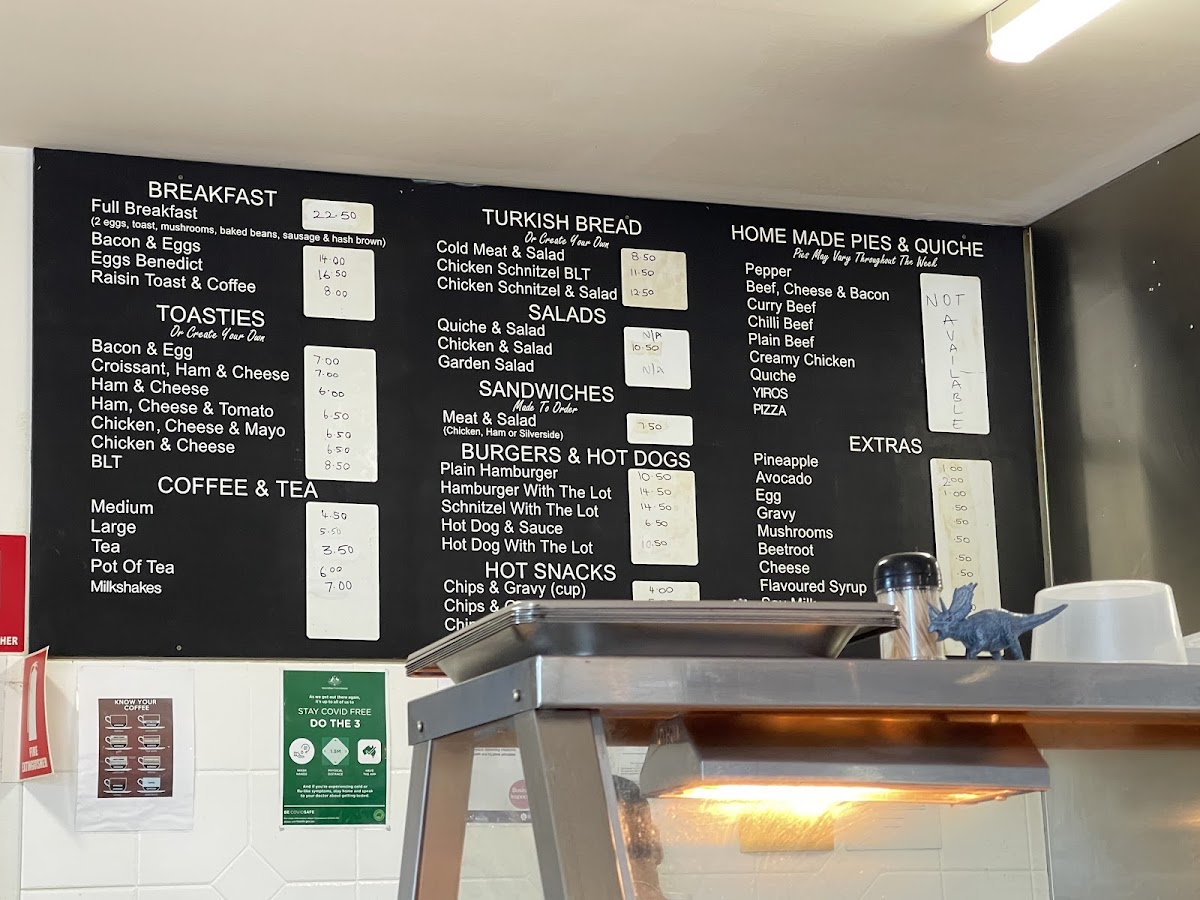 BREAKFAST
Full Breakfast 22.50
(2 eggs, toast, mushrooms, baked beans, sausage & hash brown)
Bacon & Eggs 14.00
Eggs Benedict 16.50
Raisin Toast & Coffee 8.00
TOASTIES
Or Create Your Own
Bacon & Egg 7.00
Croissant, Ham & Cheese 7.00
Ham & Cheese 6.00
Ham, Cheese & Tomato 6.50
Chicken, Cheese & Mayo 6.50
Chicken & Cheese 6.50
BLT 8.50
COFFEE & TEA
Medium 4.50
Large 5.50
Tea 3.50
Pot Of Tea 6.00
Milkshakes 7.00
TURKISH BREAD
Or Create Your Own
Cold Meat & Salad 8.50
Chicken Schnitzel BLT 11.50
Chicken Schnitzel & Salad 12.50
SALADS
Quiche & Salad N/A
Chicken & Salad 10.50
Garden Salad N/A
SANDWICHES
Made To Order
Meat & Salad 7.50
(Chicken, Ham or Silverside)
BURGERS & HOT DOGS
Plain Hamburger 10.50
Hamburger With The Lot 14.50
Schnitzel With The Lot 14.50
Hot Dog & Sauce 6.50
Hot Dog With The Lot 10.50
HOT SNACKS
Chips & Gravy (cup) 4.00
Chips &
HOME MADE PIES & QUICHE
Pies May Vary Throughout The Week
Pepper
Beef, Cheese & Bacon
Curry Beef
Chilli Beef
Plain Beef
Creamy Chicken
Quiche
YIROS
PIZZA
NOT AVAILABLE
EXTRAS
Pineapple 1.00
Avocado 2.00
Egg 1.00
Gravy .50
Mushrooms .50
Beetroot .50
Cheese .50
Flavoured Syrup .50
HER
FIRE
EXTINGUISHER
KNOW YOUR
COFFEE
As we get out there again,
it's up to all of us to
STAY COVID FREE
DO THE 3
1.5M
WASH
HANDS
PHYSICAL
DISTANCE
HAVE
THE APP
And if you're experiencing cold or
flu-like symptoms, stay home and speak
to your doctor about getting tested.
BE COVIDSAFE